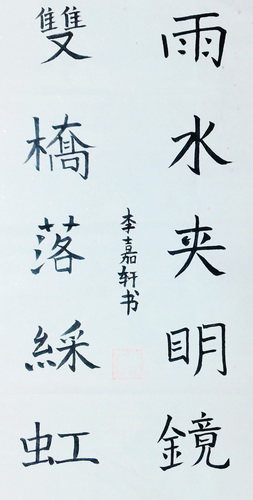 雨水夹明鏡
雙橋落綵虹
李嘉轩书